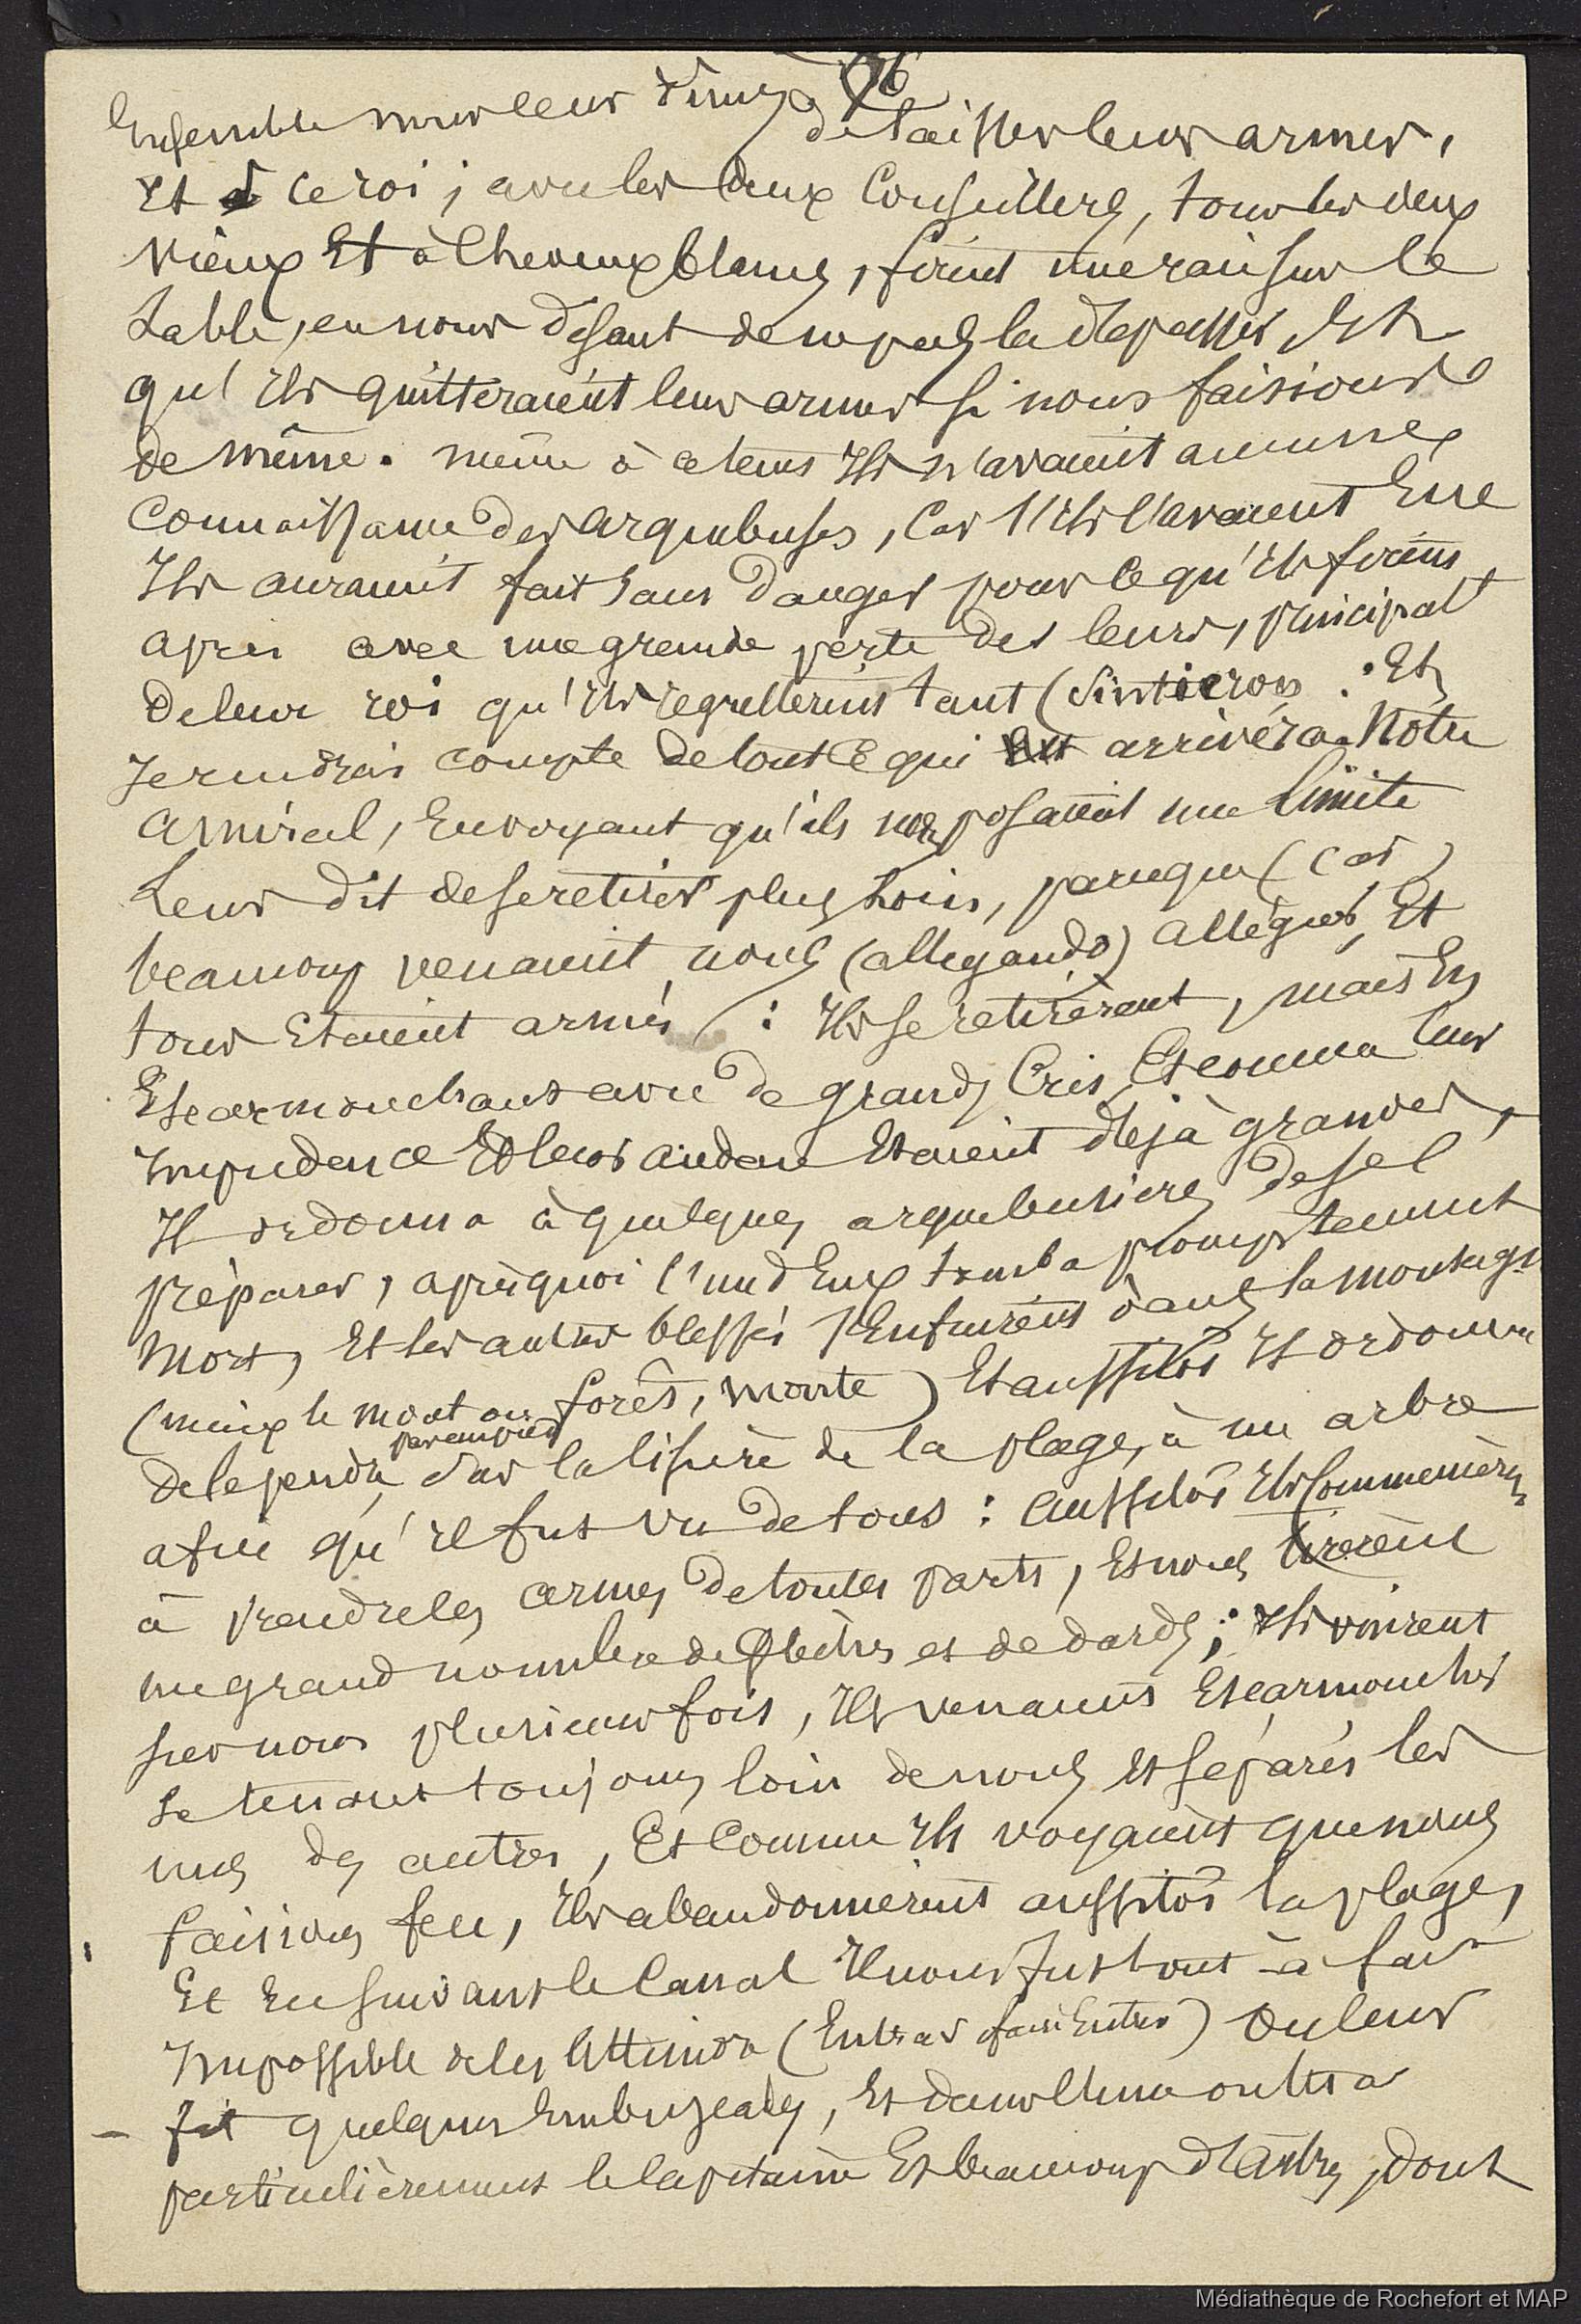 76
Ensemble nous leur dimes de laisser leurs armes,
Et ce roi, avec les deux Conseillers, tous les deux
vieux Et à Cheveux blancs, firent une raie sur le
sable, en nous disant de ne pas la dépasser Et
qu'ils quitteraient leurs armes si nous faisions
de même. même à ce tems Ils n'avaient aucune
Connaissance des arquebuses, Car s'ils l'avaient Eue
Ils auraient fait sans danger pour ce qu'ils firent
après avec une grande perte des leurs, principalt
de leur roi qu'ils regrettèrent tant (Sintieron : Et
Je rendrai compte de tout ce qui arrivera. Notre
Amiral, En voyant qu'ils nous posaient une limite
Leur dit de se retirer plus Loin, parceque (Car)
beaucoup venaient, nous (allegando) alléguer, Et
tous Etaient armés : Ils se retirèrent, mais En
Escarmouchant avec de grands Cris, Et comme leur
Impudence Et leur audace Etaient déjà grandes,
Il ordonna à quelques arquebusiers de se
préparer, après quoi l'un d'Eux tomba promptement
Mort, Et les autres blessés s'Enfuirent dans la montagne
(mieux le mont ou forêt, monte) Et aussitôt Il ordonna
de le pendre par un pied sur la lisière de la plage, à un arbre
afin qu'il fut vu de tous : aussitôt Ils Commencèrent
à prendre les armes de toutes parts, Et nous tirèrent
un grand nombre de flèches et de dards ; Ils vinrent
sur nous plusieurs fois, Ils venaient Escarmoucher
se tenant toujours loin de nous Et séparés les
uns des autres, Et Comme Ils voyaient que nous
faisions feu, Ils abandonnèrent aussitôt la plage,
Et En suivant le Canal Il nous fut tout à fait
Impossible de les Atteindre (Entrar faire Entrer) On leur
fit quelques Embuscades, Et dans l'une outra
particulièrement le Capitaine Et beaucoup d'autres, dont
Médiathèque de Rochefort et MAP